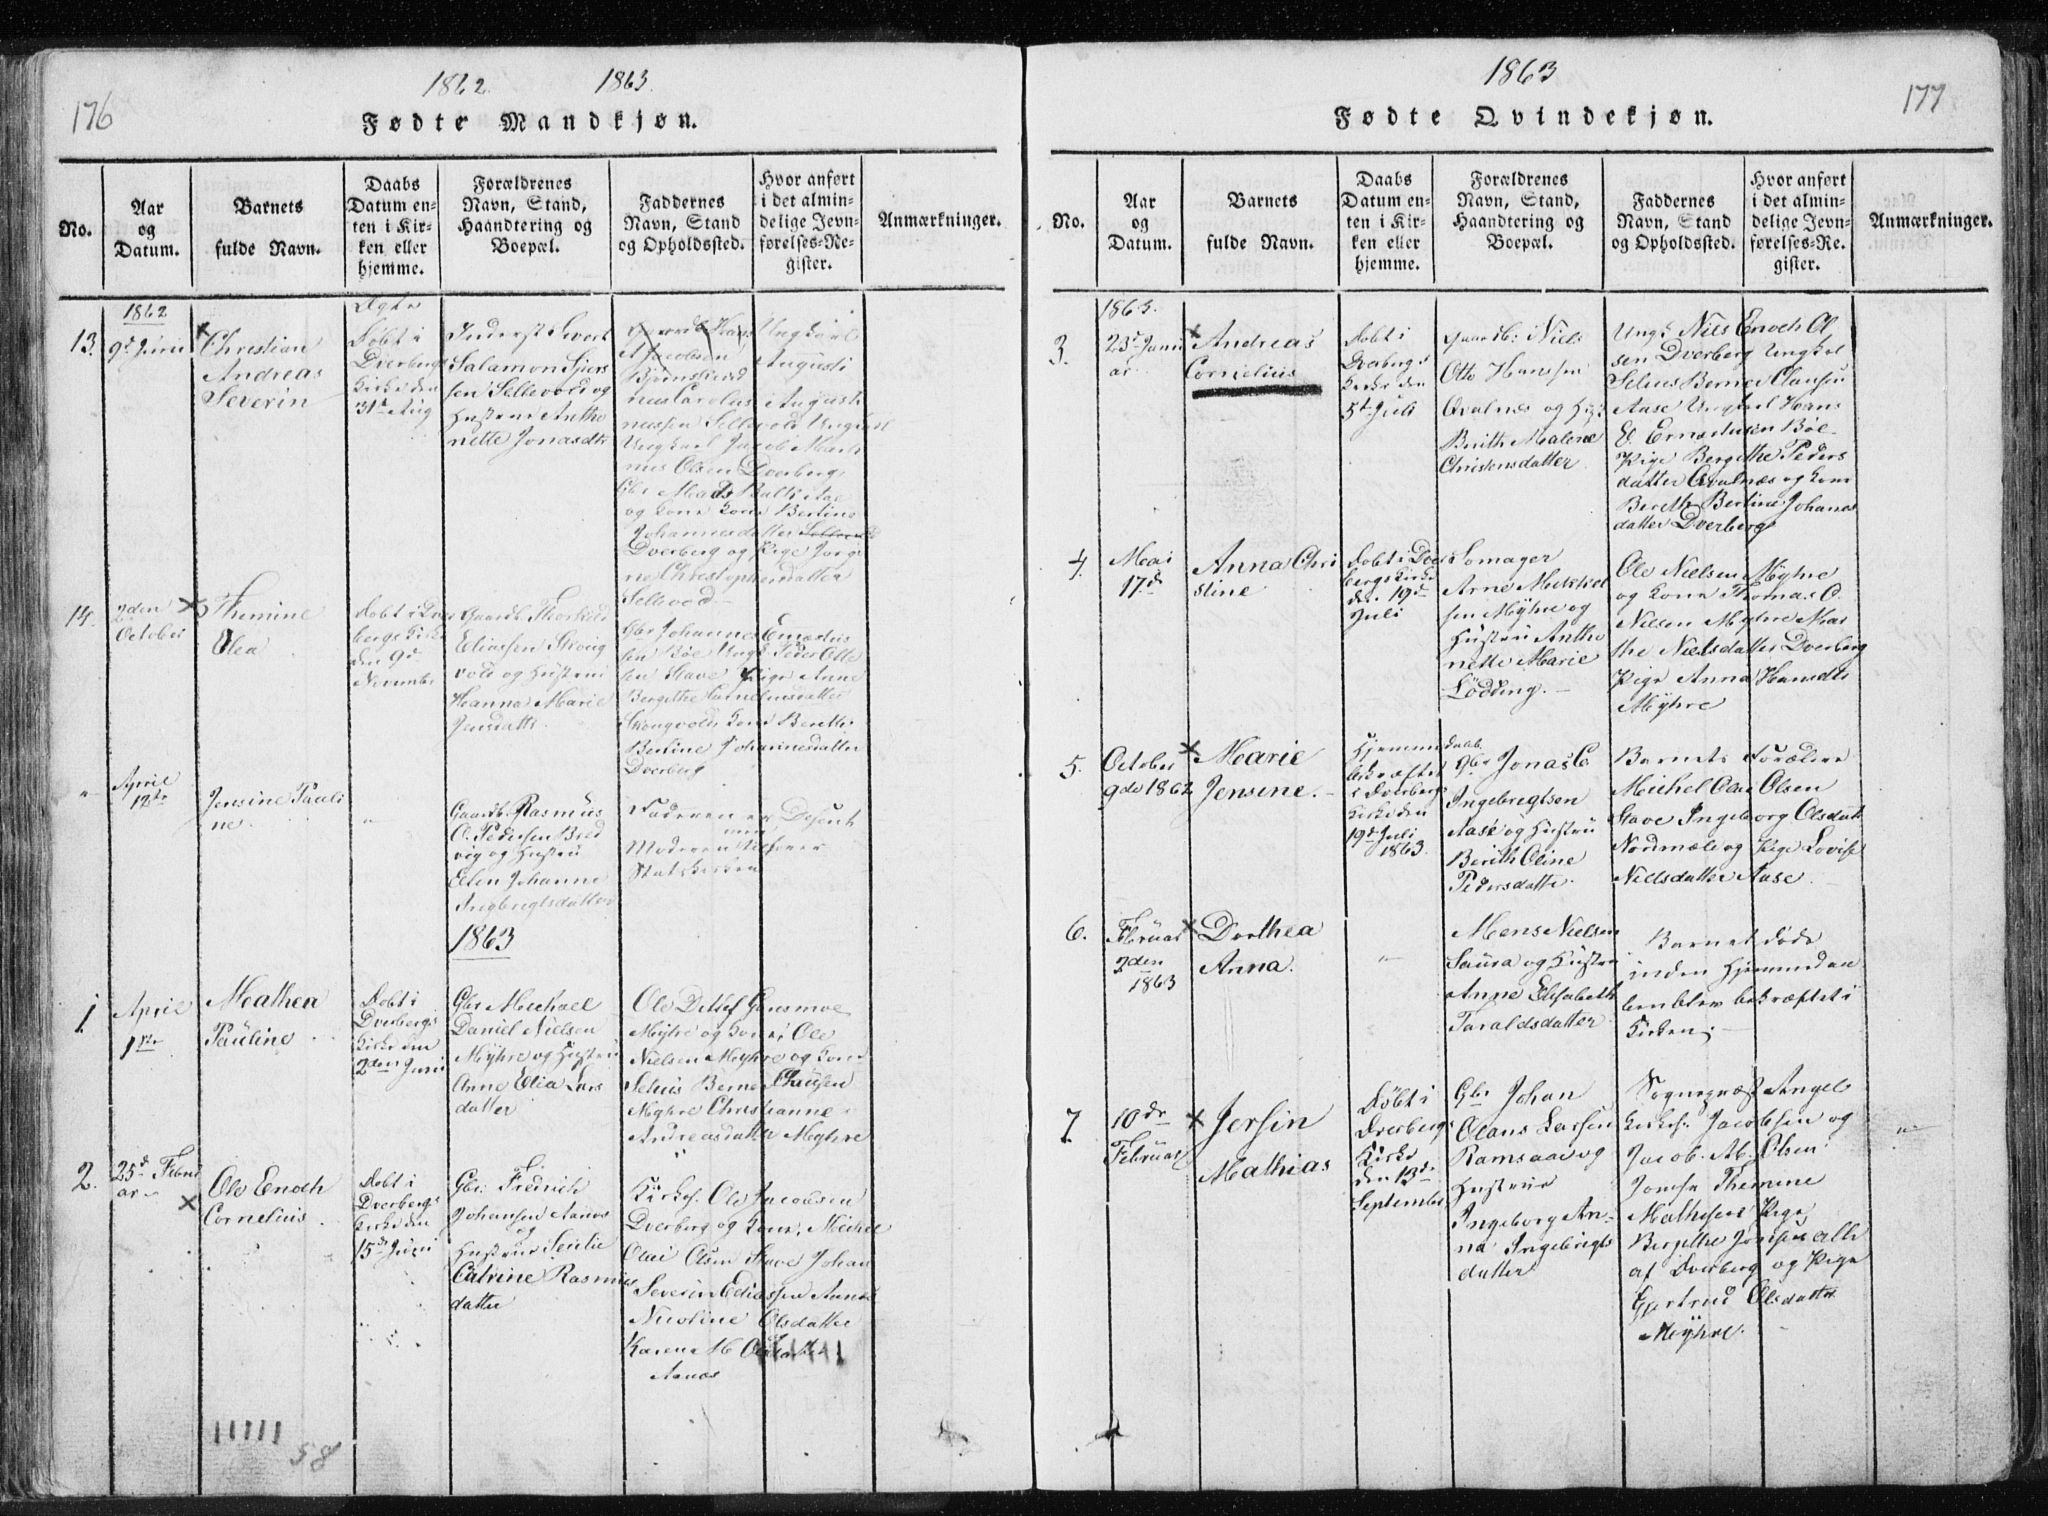 176
1862
1863
Fødte Mandkjøn.
No.
Aar
og
Datum.
Barnets
fulde Navn.
Daabs
Datum en-
ten i Kir-
ken eller
hjemme.
Forældrenes
Navn, Stand,
Haandtering og
Boepæl.
Faddernes
Navn, Stand
og Opholdssted.
Hvor anført
i det almin-
delige Jevn-
førelses-Re-
gister.
Anmærkninger.
1862
13.
9d Juni
Christian
Andreas
Severin
Døbt i
Dverbergs
Kirke den
31te Aug
Inderst
Salamon
sen Sellevold og
Hustru Anthe
nette Jonasdtr
Jacobsen
Carolus August
nussen Sellevold
Ungkarl Jacob Mart
nus Olsen Dverberg
Gbr Mads
og Kone Bertine
Johannesdatter
Dverberg og Pige Jørg
ne Christophersdatter
Sellevod
14.
2den
October
Themine
Olea
Døbt i Dver
bergs Kirke
den 9d
November
Gaardb. Thorkild
Eliassen Skoug
vold og Hustru
Hanna Marie
Jensdattr
Gbr Johannes Ernstus
sen Bøe Ungk Peder Olle
sen Stave Pige Anne
Bergithe Corneliusdatter
Skougvold Kone Berette
Bertine Johannesdatter
Dverberg
April
12te
Jensine Pauli
ne.
Gaardb. Rasmus
O. Pedersen Bred
vig og Hustru
Elen Johanne
Ingbrigtsdatter
Faderen er Disent
Moderen
Statskirken
1863
1
April
1ste
Mathea
Pauline
Døbt i
Dverbergs
Kirke den
2den Juni
Gbr Michael
Daniel Nielsen
Myhre og Hustru
Anne Elia Lars
datter
Ole Detlef
Myhre og Kone, Ole
Nielsen Myhre og Kone
Selius Berner Clausen
Myhre Christianne
Andreasdatter Myhre
2.
25d Febru
ar
Ole Enoch
Cornelius
Døbt i
Dverbergs
Kirke den
15de Juni
Gbr: Fredrich
Johansen Aanæs
og
Hustrue
Catrine Rasmus
datter
Kirkes. Ole Jacobsen
Dverberg og Kone, Michel
Olai Olsen Stave Johan
Severin Eliassen Aanæs
Nicoline Olsdatter
Karen M Olsdatter
Aanæs
58
1863
177
Fødte Qvindekjøn.
No.
Aar
og
Datum.
Barnets
fulde Navn.
Daabs
Datum en-
ten i Kir-
ken eller
hjemme.
Forældrenes
Navn, Stand,
Haandtering og
Boepæl.
Faddernes
Navn, Stand
og Opholdssted.
Hvor anført
i det almin-
delige Jevn-
førelses-Re-
gister.
Anmærkninger.
1863.
3.
23d Janu
ar
Andreas
Cornelius
Døbt i
Dverbergs
Kirke den
5t Juli
Gaardb: Niels
Otto Hansen
Qvalnes og Hus
Brith Malene
Christensdatter
Ungk Niels Enoch Ol
sen Dverberg Ungkal
Selius Berner Clausen
Aase Ungkarl Hans
E. Ernstusen Bøe
Pige Bergithe Peders
datter Qvalnæs og Kone
Bereth Bertine Johanes
datter Dverberg
4.
Mai
17de
Anna Chri
stine
Døbt i Dver
bergs Kirke
den 19de
Juli
Arne Mikkel
sen Myhre og
Hustru Anthe
nette Marie
Lødding.
Ole Nielsen Myhre
og Kone Thomas O.
Nielsen Myhre Mar
the Nielsdatter Dverberg
Pige Anna Hansdtr
Myhre
5.
October
9de 1862
Marie
Jensine.
Hjemmedaab.
bekræftet
i Dverbergs
Kirke den
19d Juli
1863.
Gbr Jonas C
Ingebregtsen
Aase og Hustru
Berith Oline
Pedersdatte.
Barnets Forældre
Michel Olai Olsen
Stave Ingeborg Olsdatt
Nordmæle og Pige Lovise
Nielsdatter Aase.
6.
Februar
3den
1863
Dorthea
Anna.
Mons Nielsen
Saura og Hustru
Anne Elisabeth
Taraldsdatter
Barnet døde
inden Hjemmedaa
ben blev bekræftet i
Kirken.
7.
10de
Februar
Jersin
Mathias
Døbt i
Dverbergs
Kirke
den 13de
September
Gbr Johan
Olaus Larsen
Ramsaa og
Hustrue
Ingeborg An-
na Ingebrigts
datter
Sognepræst Angel
Kirkes. Jacobsen og
Jacob. M. Olsen
Jomfr Themine
Mathisen Pige
Bergithe Jonsen alle
af Dverberg og Pige
Gjertrud Olsdatter
Myhre.